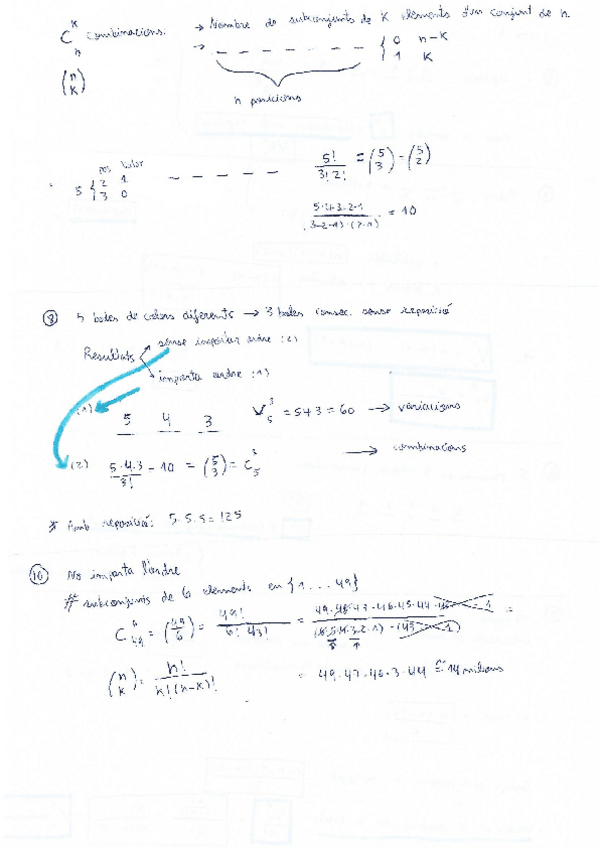 C_n^k combinacions. → Nombre de subconjunts de K elements d'un conjunt de n.
→ _ _ _ _ _ _ _ { 0 n-K
1 K
(n K)
n posicions
pos Valor
5 { 2 1
3 0
_ _ _ _ _
5! / 3! 2! = (5 3) = (5 2)
5·4·3·2·1 / (3·2·1)·(2·1) = 10
(8) 5 boles de colors diferents → 3 boles consec. sense reposició
Resultats
sense importar ordre (2)
importa ordre (1)
(1) 5 4 3 V_5^3 = 5·4·3 = 60 → variacions
(2) 5·4·3 / 3! = 10 = (5 3) = C_5^3 → combinacions
* Amb reposició: 5·5·5 = 125
(10) No importa l'ordre
# subconjunts de 6 elements en {1 ... 49}
C_49^6 = (49 6) = 49! / 6! 43! = 49·48·47·46·45·44·43 ... 1 / (6·5·4·3·2·1)·(43 ... 1) =
(n k) = n! / k!(n-k)! = 49·47·46·3·44 ≅ 14 milions